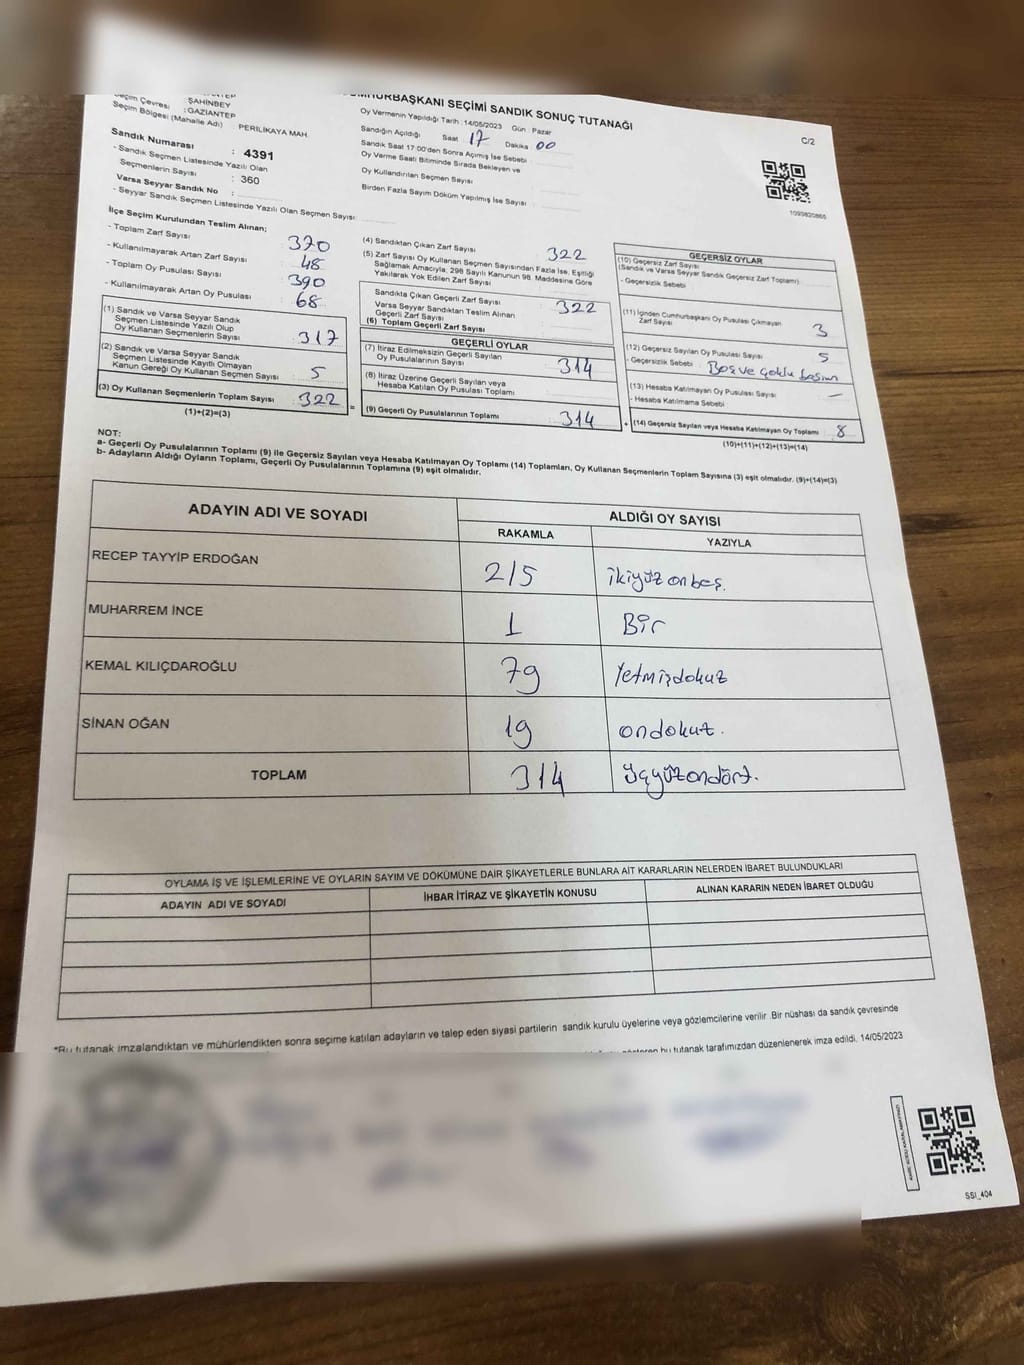 CUMHURBAŞKANI SEÇİMİ SANDIK SONUÇ TUTANAĞI
C/2
Seçim Çevresi : ŞAHİNBEY
: GAZİANTEP
Seçim Bölgesi (Mahalle Adı) : PERİLİKAYA MAH.
Sandık Numarası : 4391
- Sandık Seçmen Listesinde Yazılı Olan
Seçmenlerin Sayısı : 360
Varsa Seyyar Sandık No :
- Seyyar Sandık Seçmen Listesinde Yazılı Olan Seçmen Sayısı:
Oy Vermenin Yapıldığı Tarih :14/05/2023 Gün : Pazar
Sandığın Açıldığı Saat 17 Dakika 00
Sandık Saat 17:00'den Sonra Açımış İse Sebebi
Oy Verme Saati Bitiminde Sırada Bekleyen ve
Oy Kullandırılan Seçmen Sayısı
Birden Fazla Sayım Döküm Yapılmış İse Sayısı
1093820865
İlçe Seçim Kurulundan Teslim Alınan;
- Toplam Zarf Sayısı 370
- Kullanılmayarak Artan Zarf Sayısı 48
- Toplam Oy Pusulası Sayısı 390
- Kullanılmayarak Artan Oy Pusulası 68
(1) Sandık ve Varsa Seyyar Sandık
Seçmen Listesinde Yazılı Olup
Oy Kullanan Seçmenlerin Sayısı 317
(2) Sandık ve Varsa Seyyar Sandık
Seçmen Listesinde Kayıtlı Olmayan
Kanun Gereği Oy Kullanan Seçmen Sayısı 5
(3) Oy Kullanan Seçmenlerin Toplam Sayısı 322 =
(1)+(2)=(3)
(4) Sandıktan Çıkan Zarf Sayısı 322
(5) Zarf Sayısı Oy Kullanan Seçmen Sayısından Fazla İse, Eşitliği
Sağlamak Amacıyla; 298 Sayılı Kanunun 98. Maddesine Göre
Yakılarak Yok Edilen Zarf Sayısı
Sandıkta Çıkan Geçerli Zarf Sayısı 322
Varsa Seyyar Sandıktan Teslim Alınan
Geçerli Zarf Sayısı
(6) Toplam Geçerli Zarf Sayısı
GEÇERLİ OYLAR
(7) İtiraz Edilmeksizin Geçerli Sayılan
Oy Pusulalarının Sayısı 314
(8) İtiraz Üzerine Geçerli Sayılan veya
Hesaba Katılan Oy Pusulası Toplamı
(9) Geçerli Oy Pusulalarının Toplamı 314 +
GEÇERSİZ OYLAR
(10) Geçersiz Zarf Sayısı
(Sandık ve Varsa Seyyar Sandık Geçersiz Zarf Toplamı)
- Geçersizlik Sebebi
(11) İçinden Cumhurbaşkanı Oy Pusulası Çıkmayan
Zarf Sayısı 3
(12) Geçersiz Sayılan Oy Pusulası Sayısı 5
- Geçersizlik Sebebi Boş ve çoklu basım
(13) Hesaba Katılmayan Oy Pusulası Sayısı —
- Hesaba Katılmama Sebebi
(14) Geçersiz Sayılan veya Hesaba Katılmayan Oy Toplamı 8
(10)+(11)+(12)+(13)=(14)
NOT:
a- Geçerli Oy Pusulalarının Toplamı (9) ile Geçersiz Sayılan veya Hesaba Katılmayan Oy Toplamı (14) Toplamları, Oy Kullanan Seçmenlerin Toplam Sayısına (3) eşit olmalıdır. (9)+(14)=(3)
b- Adayların Aldığı Oyların Toplamı, Geçerli Oy Pusulalarının Toplamına (9) eşit olmalıdır.
ADAYIN ADI VE SOYADI ALDIĞI OY SAYISI
RAKAMLA YAZIYLA
RECEP TAYYİP ERDOĞAN 215 ikiyüzonbeş.
MUHARREM İNCE 1 Bir
KEMAL KILIÇDAROĞLU 79 Yetmişdokuz
SİNAN OĞAN 19 ondokuz.
TOPLAM 314 üçyüzondört.
OYLAMA İŞ VE İŞLEMLERİNE VE OYLARIN SAYIM VE DÖKÜMÜNE DAİR ŞİKAYETLERLE BUNLARA AİT KARARLARIN NELERDEN İBARET BULUNDUKLARI
ADAYIN ADI VE SOYADI İHBAR İTİRAZ VE ŞİKAYETİN KONUSU ALINAN KARARIN NEDEN İBARET OLDUĞU
*Bu tutanak imzalandıktan ve mühürlendikten sonra seçime katılan adayların ve talep eden siyasi partilerin sandık kurulu üyelerine veya gözlemcilerine verilir .Bir nüshası da sandık çevresinde
bu tutanak tarafımızdan düzenlenerek imza edildi. 14/05/2023
SSI_404